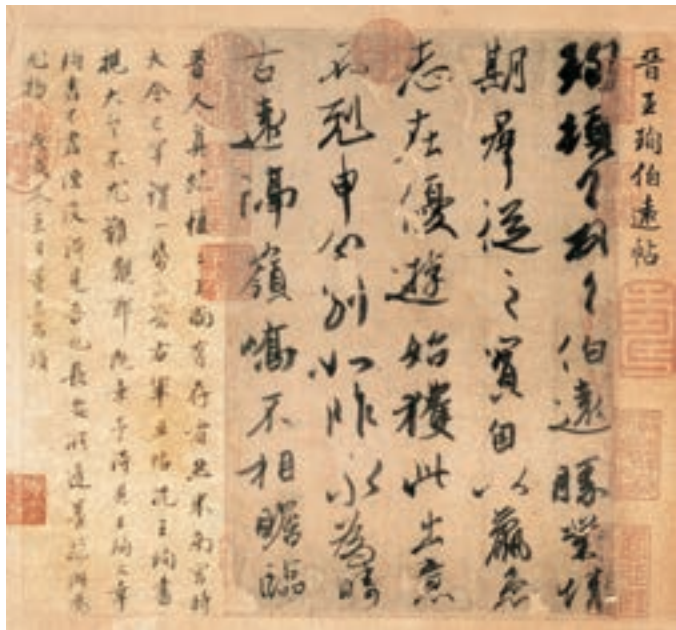 晉王珣伯遠帖
珣頓首頓首伯遠勝業情
期群從之寶自以羸患
志在優遊始獲此出意
不剋申分別如昨永為疇
古遠隔嶺嶠不相瞻臨
晉人真跡惟二王尚有存者然米南宮時
大令已罕謂一紙可當右軍五帖況王珣書
視大令不尤難覯耶既幸予得見王珣又幸
珣書不盡湮沒得見吾也長安所逢墨跡此為
尤物 戊戌冬至日董其昌題